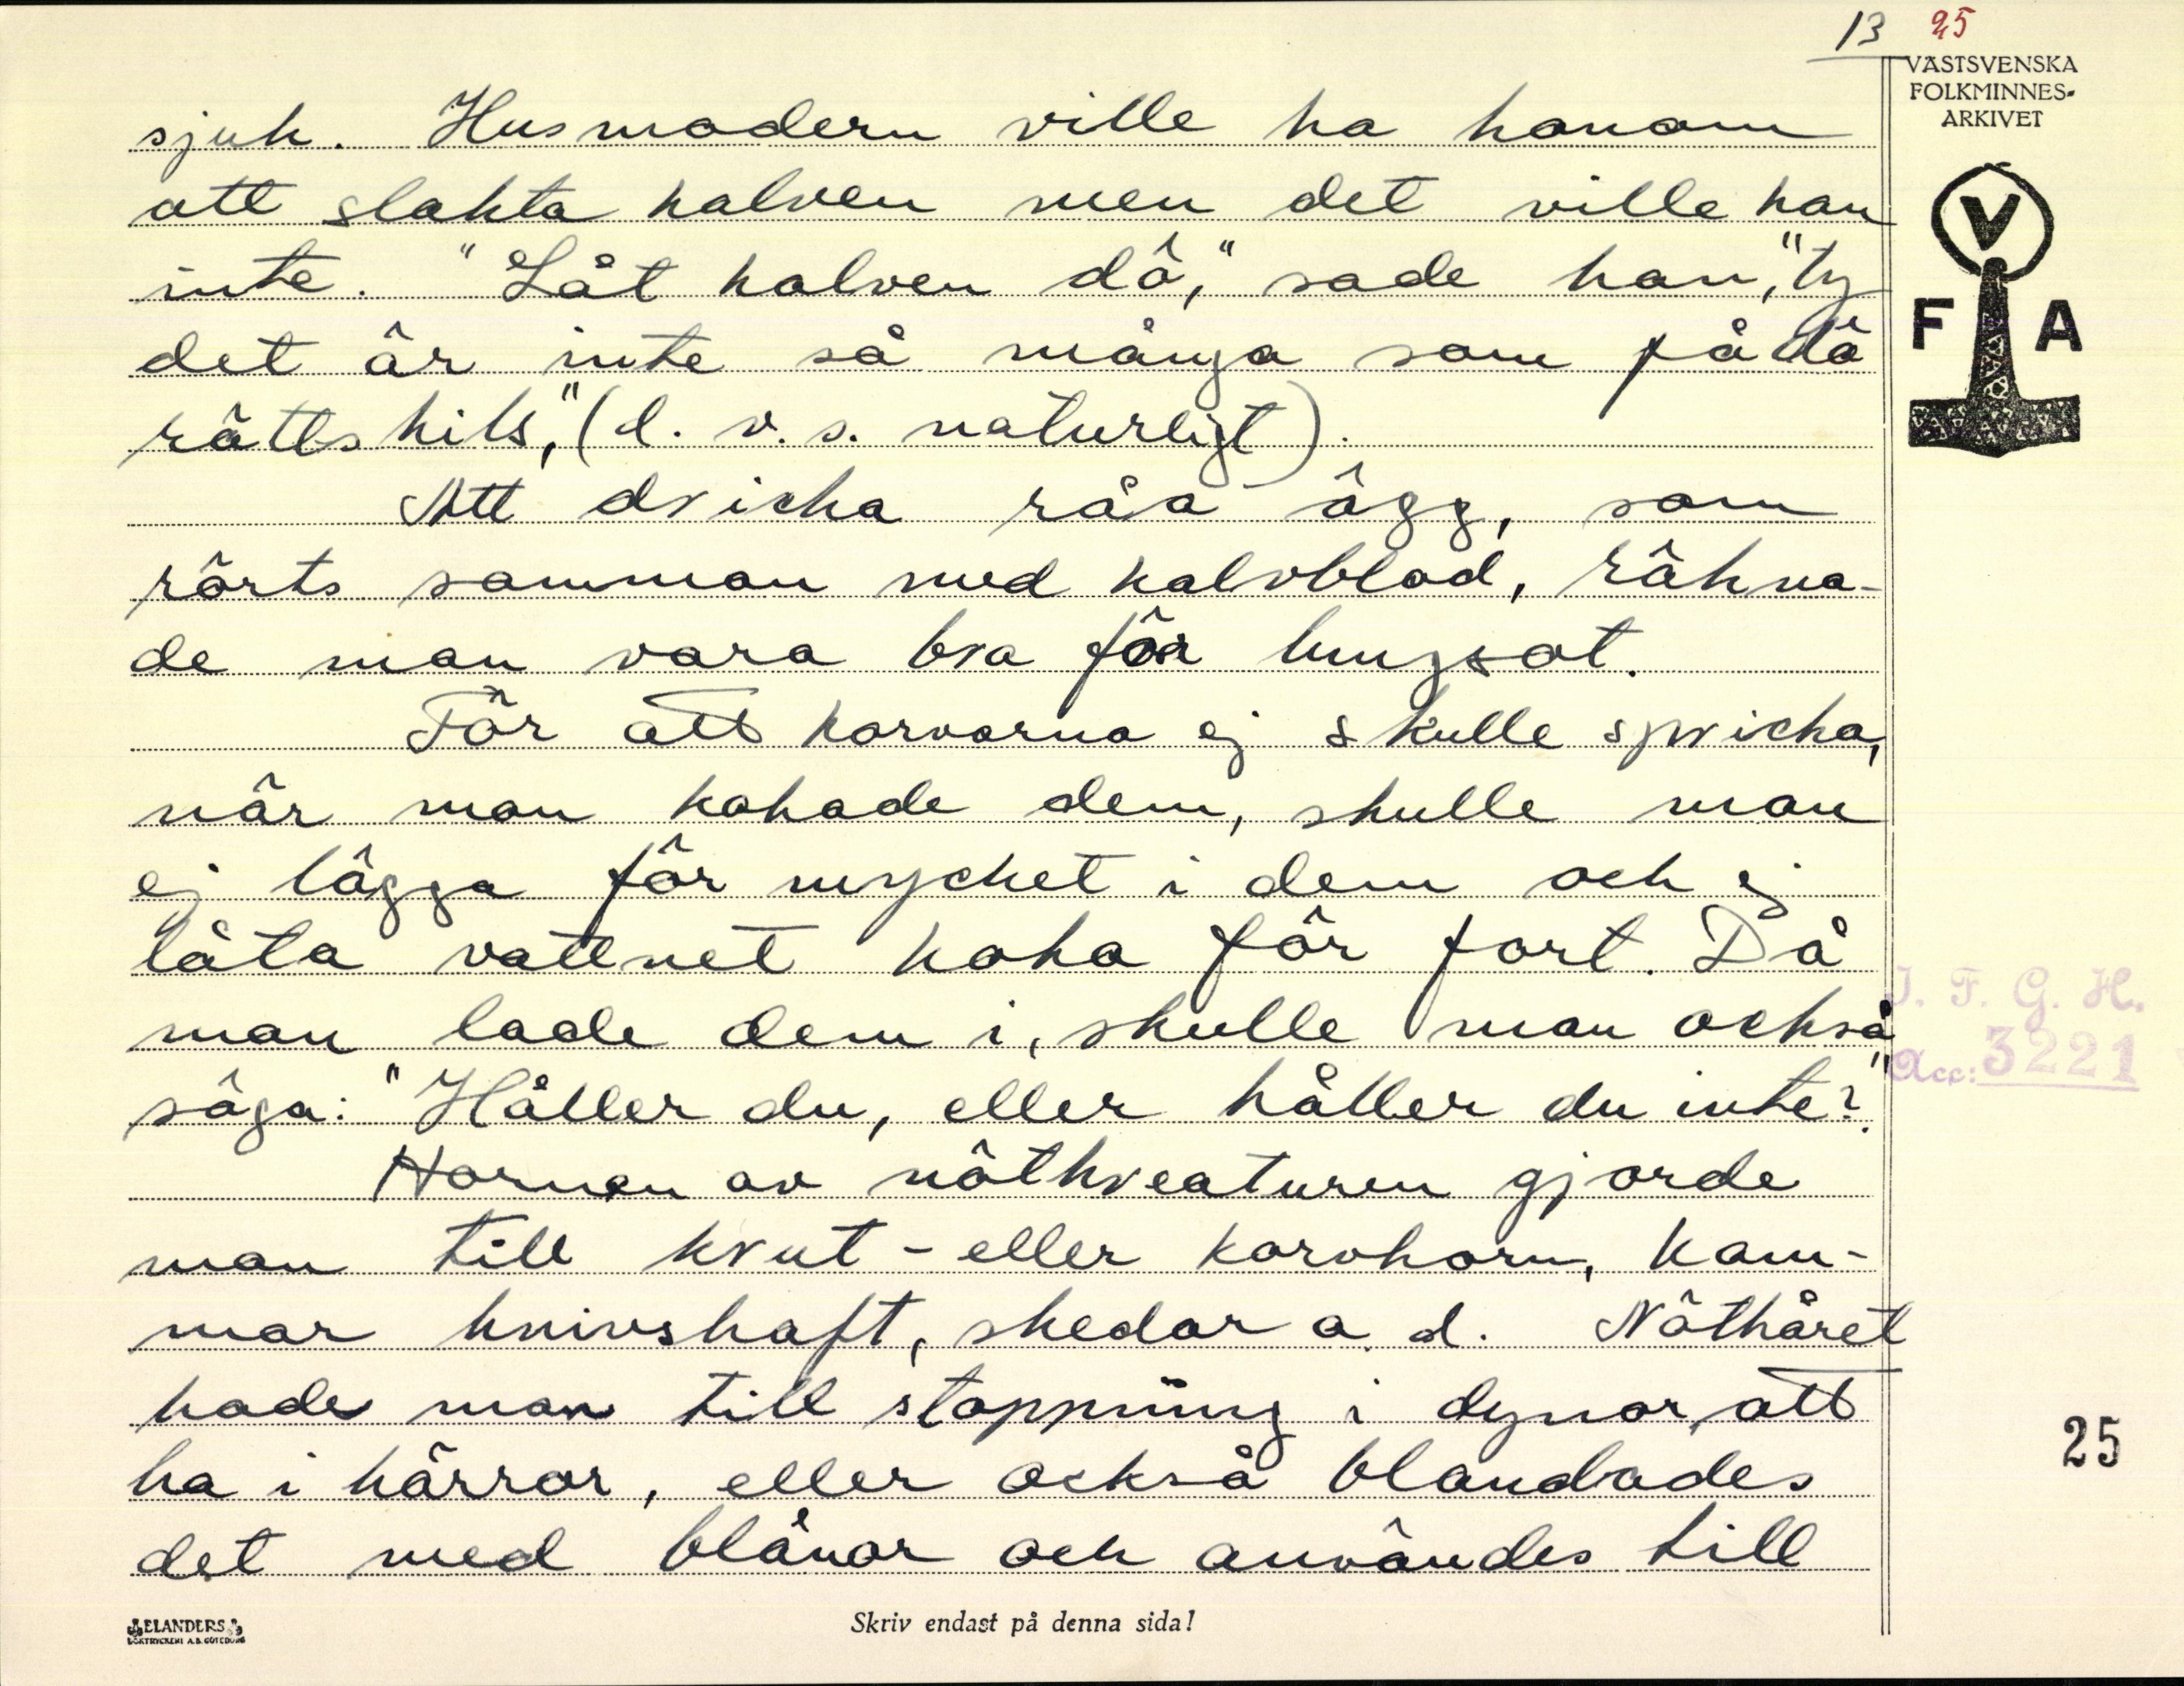 13 25
VÄSTSVENSKA
FOLKMINNES-
ARKIVET
V
F A
sjuk. Husmodern ville ha honom
att slakta kalven men det ville han
inte. "Låt kalven dö," sade han, "ty
det är inte så många som få dö
rätts kils," (d. v. s. naturligt).
Att dricka råa ägg, som
rörts samman med kalvblod, räkna-
de man vara bra för lungsot.
För att korvarna ej skulle spricka,
när man kokade dem, skulle man
ej lägga för mycket i dem och ej
låta vattnet koka för fort. Då
man lade dem i, skulle man också
säga: "Håller du, eller håller du inte?"
Hornen av nötkreaturen gjorde
man till krut- eller korvhorn, kam-
mar knivshaft, skedar a. d. Nöthåret
hade man till stoppning i dynor, att
ha i kärror, eller också blandades
det med blånor och användes till
I. F. G. H.
Acc: 3221
25
ELANDERS
BOKTRYCKERI A.B. GÖTEBORG
Skriv endast på denna sida!